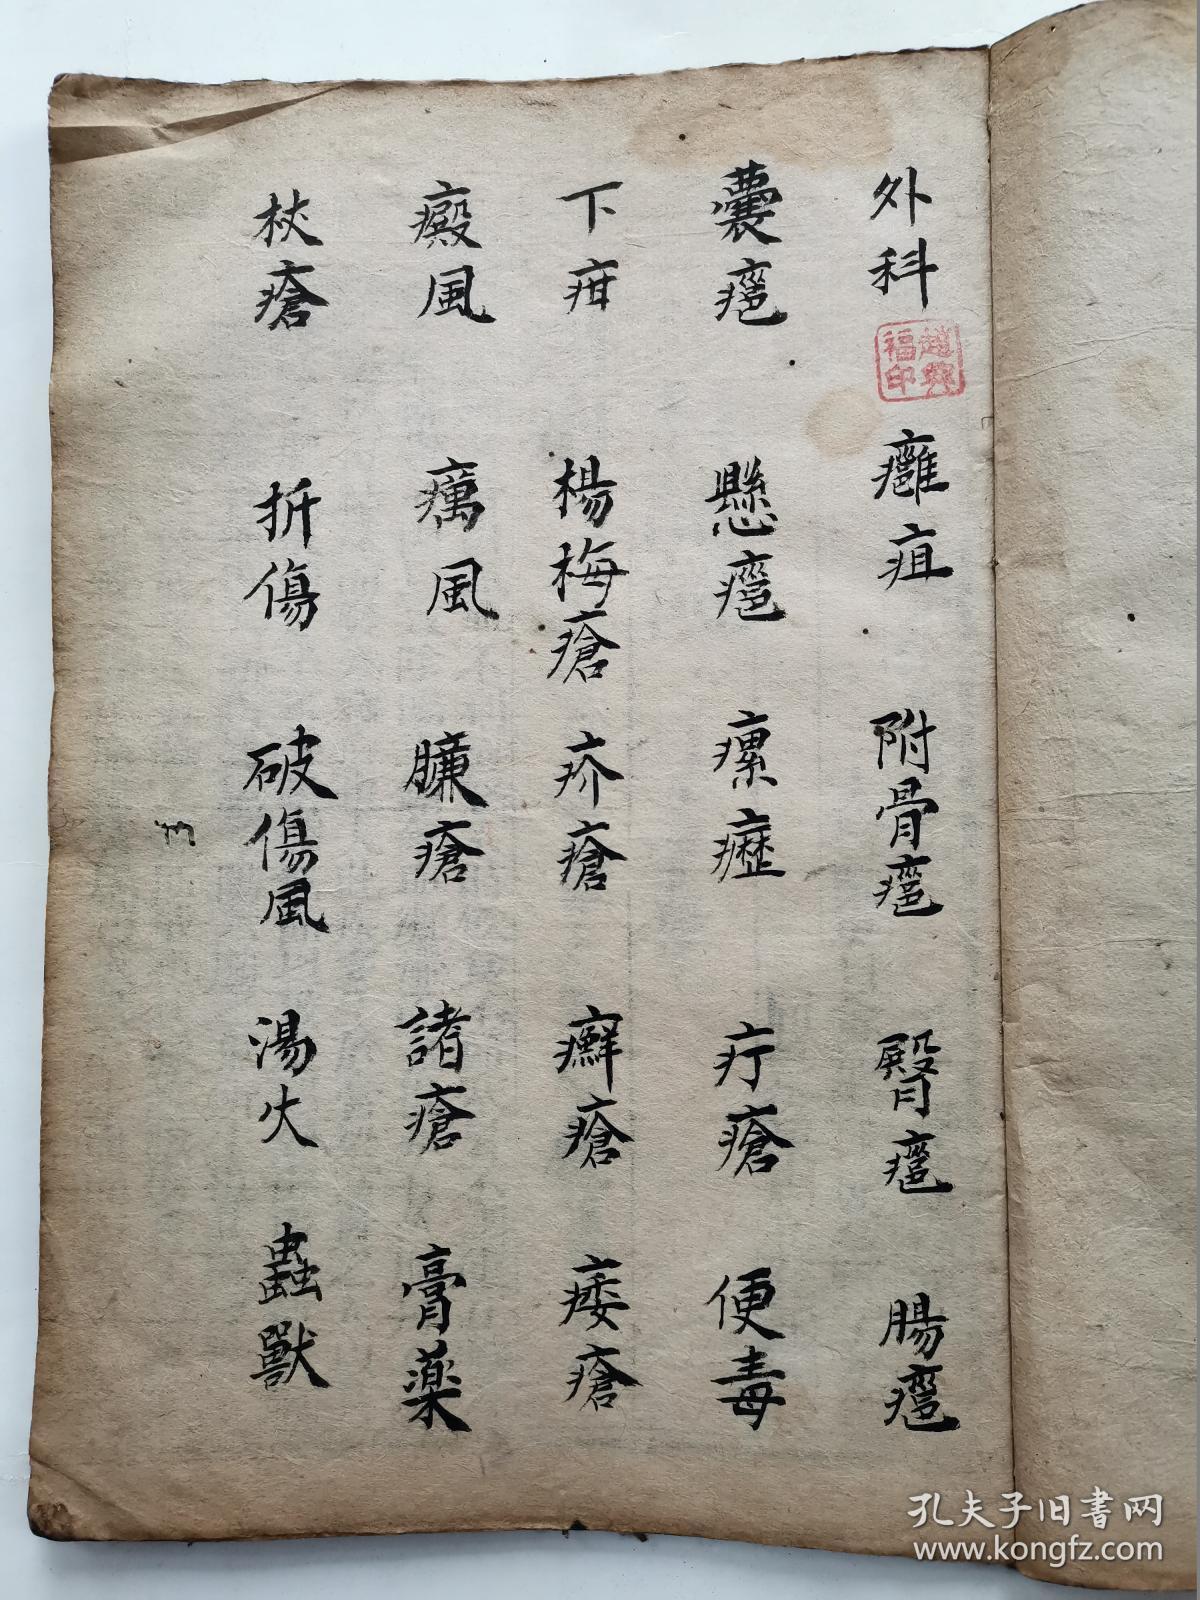 外科 癰疽 附骨癰 臀癰 腸癰
囊癰 懸癰 瘰癧 疔瘡 便毒
下疳 楊梅瘡 疥瘡 癬瘡 痿瘡
癜風 癘風 臁瘡 諸瘡 膏藥
杖瘡 折傷 破傷風 湯火 蟲獸
趙興福印
孔夫子旧书网
www.kongfz.com